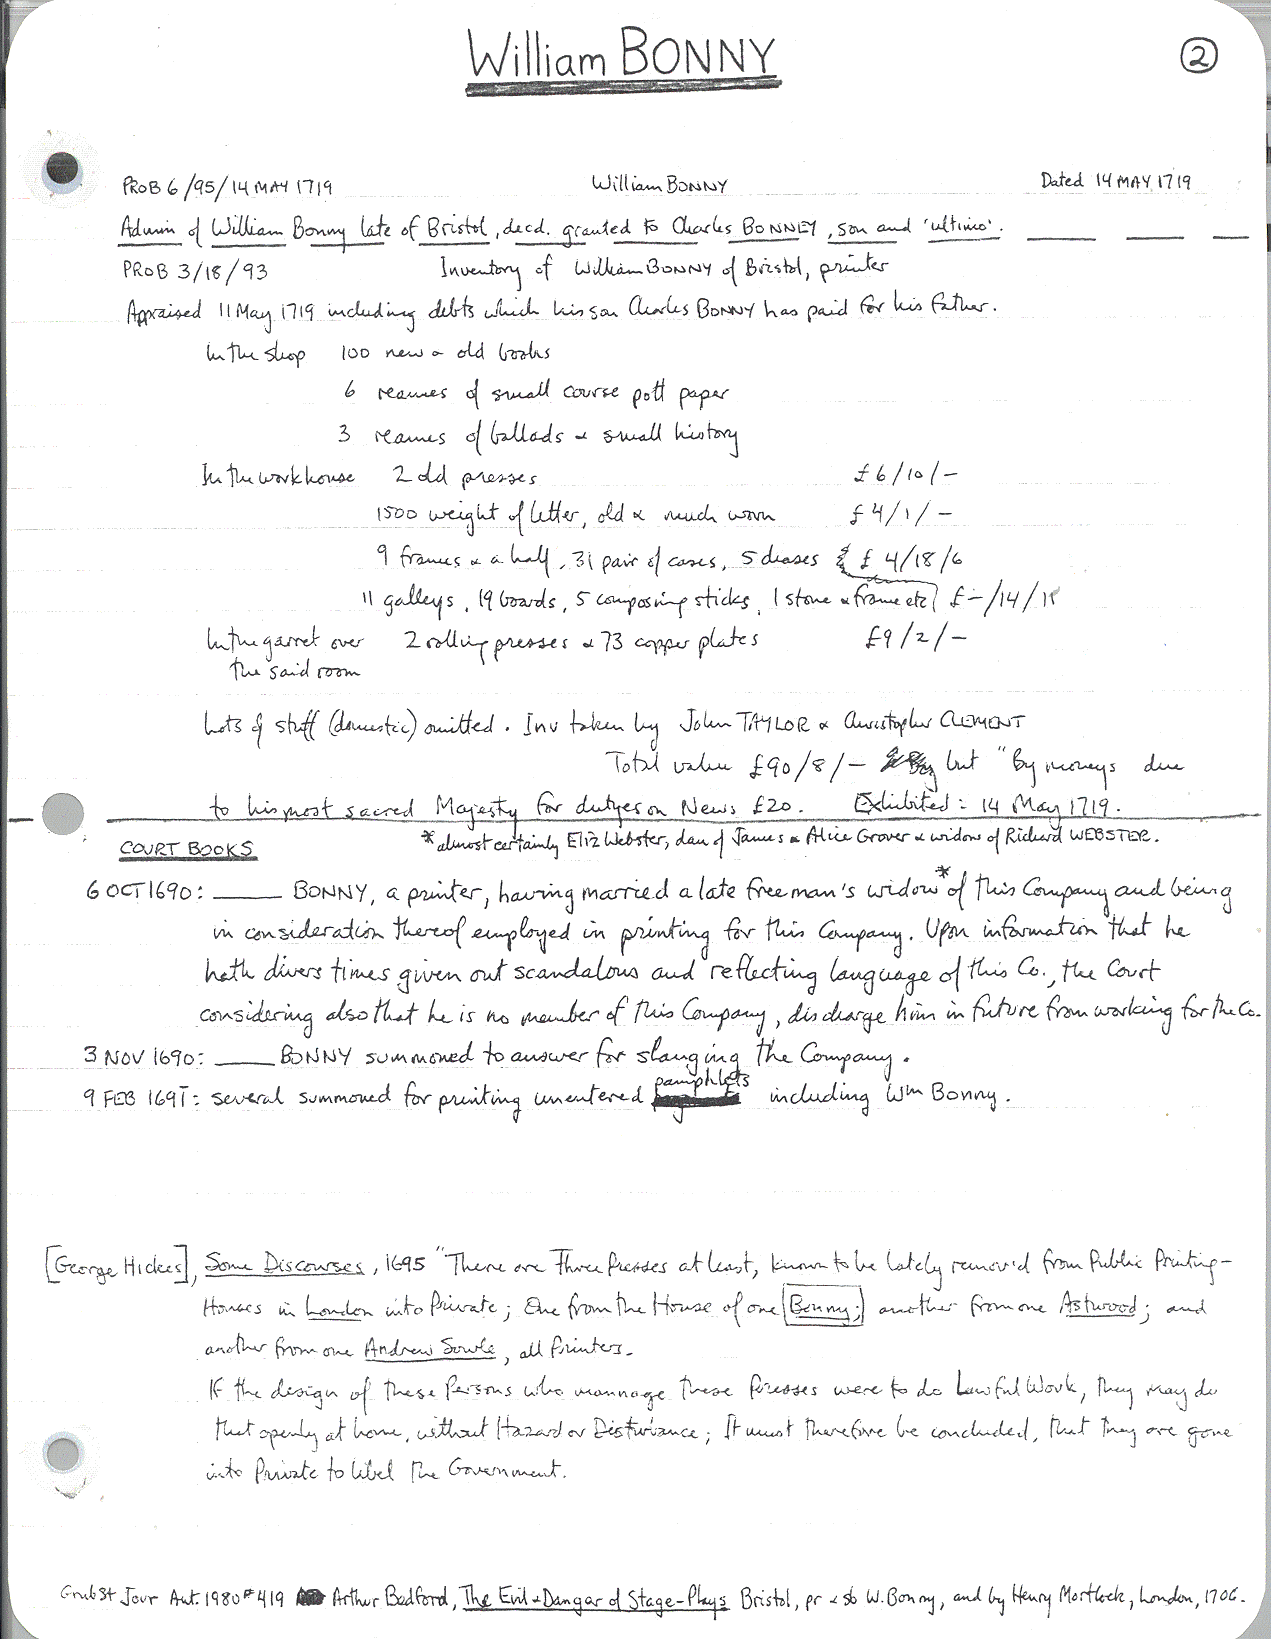 William BONNY
2
PROB 6/95/14 MAY 1719 William BONNY Dated 14 MAY 1719
Admin of William Bonny late of Bristol, decd. granted to Charles BONNEY, son and 'ultimo'.
PROB 3/18/93 Inventory of William BONNY of Bristol, printer
Appraised 11 May 1719 including debts which his son Charles BONNY has paid for his father.
In the shop 100 new & old books
6 reames of small course pott paper
3 reames of ballads & small history
In the workhouse 2 old presses £6/10/-
1500 weight of letter, old & much worn £4/1/-
9 frames & a half, 31 pair of cases, 5 deases £4/18/6
11 galleys, 19 boards, 5 composing sticks, 1 stone & frame etc £-/14/11
In the garret over 2 rolling presses & 73 copper plates £9/2/-
the said room
Lots of stuff (domestic) omitted. Inv taken by John TAYLOR & Christopher CLEMENT
Total value £90/8/- but "By moneys due
to his most sacred Majesty for dutyes on News £20. Exhibited: 14 May 1719.
*almost certainly Eliz Webster, dau of James & Alice Grover & widow of Richard WEBSTER.
COURT BOOKS
6 OCT 1690: ____ BONNY, a printer, having married a late freeman's widow* of this Company and being
in consideration thereof employed in printing for this Company. Upon information that he
hath divers times given out scandalous and reflecting language of this Co., the Court
considering also that he is no member of this Company, discharge him in future from working for the Co.
3 NOV 1690: ____ BONNY summoned to answer for slanging the Company.
9 FEB 1691: several summoned for printing unentered pamphlets including Wm Bonny.
[George Hickes], Some Discourses, 1695 "There are Three Presses at least, known to be lately remov'd from Public Printing-
Houses in London into Private; One from the House of one Bonny; another from one Astwood; and
another from one Andrew Sowle, all Printers.
If the design of these Persons who mannage these Presses were to do Lawful Work, they may do
that openly at home, without Hazard or Disturbance; It must therefore be concluded, that they are gone
into Private to libel the Government.
Grub St Jour Aut. 1980 #419 Arthur Bedford, The Evil & Dangar of Stage-Plays Bristol, pr & sb W. Bonny, and by Henry Mortlock, London, 1706.